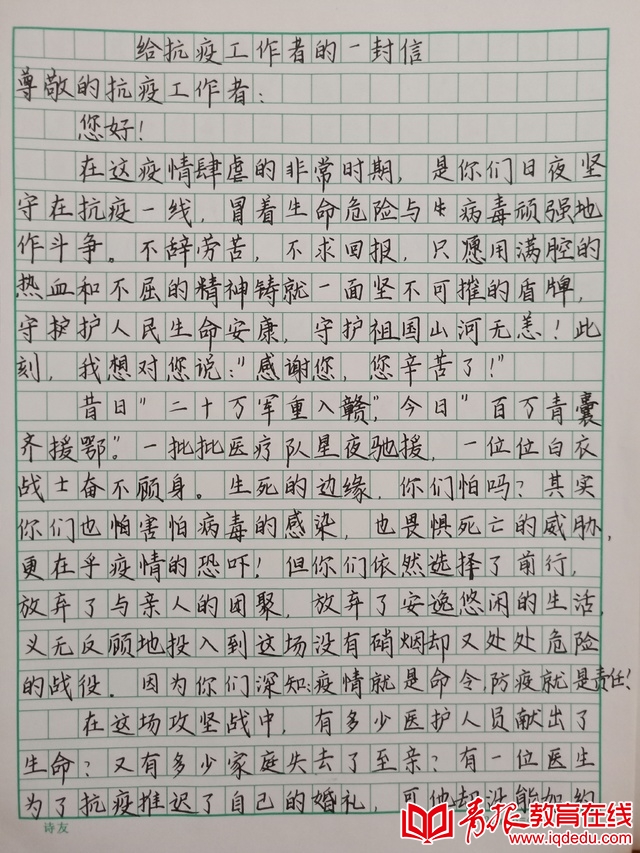 给抗疫工作者的一封信
尊敬的抗疫工作者：
您好！
在这疫情肆虐的非常时期，是你们日夜坚
守在抗疫一线，冒着生命危险与病毒顽强地
作斗争。不辞劳苦，不求回报，只愿用满腔的
热血和不屈的精神铸就一面坚不可摧的盾牌，
守护人民生命安康，守护祖国山河无恙！此
刻，我想对您说："感谢您，您辛苦了！"
昔日"二十万军重入赣"，今日"百万青囊
齐援鄂"。一批批医疗队星夜驰援，一位位白衣
战士奋不顾身。生死的边缘，你们怕吗？其实
你们也怕害怕病毒的感染，也畏惧死亡的威胁，
更在乎疫情的恐吓！但你们依然选择了前行，
放弃了与亲人的团聚，放弃了安逸悠闲的生活，
义无反顾地投入到这场没有硝烟却又处处危险
的战役。因为你们深知：疫情就是命令，防疫就是责任！
在这场攻坚战中，有多少医护人员献出了
生命？又有多少家庭失去了至亲？有一位医生
为了抗疫推迟了自己的婚礼，可他却没能如约
诗友
青报教育在线
www.iqdedu.com